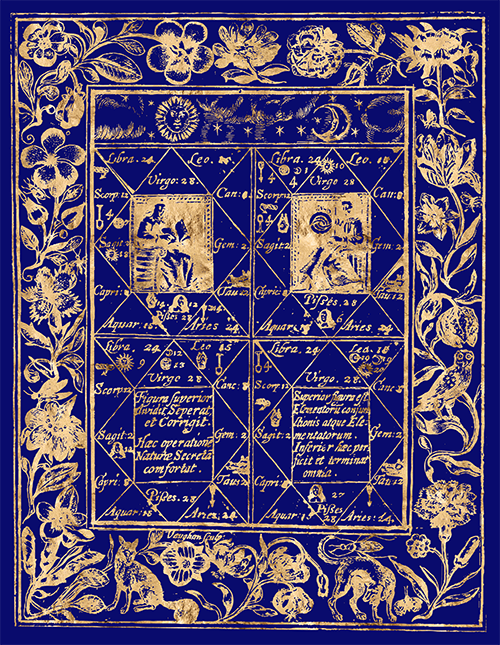 Libra. 24
Leo. 18
Virgo: 28
Scorp: 12
Can: 8
Sagit: 2
Gem: 2
Capri: 8
Tau: 12
Pisces 28
Aquar: 18
Aries 24
Libra. 24
Leo. 18
Virgo 28
Scorp: 12
Can: 8
Sagit: 2
Gem: 2
Capric: 8
Tau: 12
Pisses. 28
Aquar:
Aries. 24
Libra. 24
Leo 18
Virgo 28
Scorp: 12
Canc: 8
Figura superior
dividit, Seperat
et Corrigit.
Hæc operatione
Naturæ Secreta
comfortat.
Sagit: 2
Gem: 2
Capri: 8
Taus: 12
Pisses. 28
Aquar: 18
Aries. 24
Libra. 24
Leo. 18
Virgo. 28
Scorp: 12
Canc: 8
Superior figura est
Elementorū conjun
thonis atque Ele=
mentatorum.
Inferior hæc per
ficit et terminat
omnia.
Sagit: 2
Gem: 2
Capri: 8
Taus: 12
27
Pisses
28
Aquar: 18
Aries: 24
Vaughan sculp: